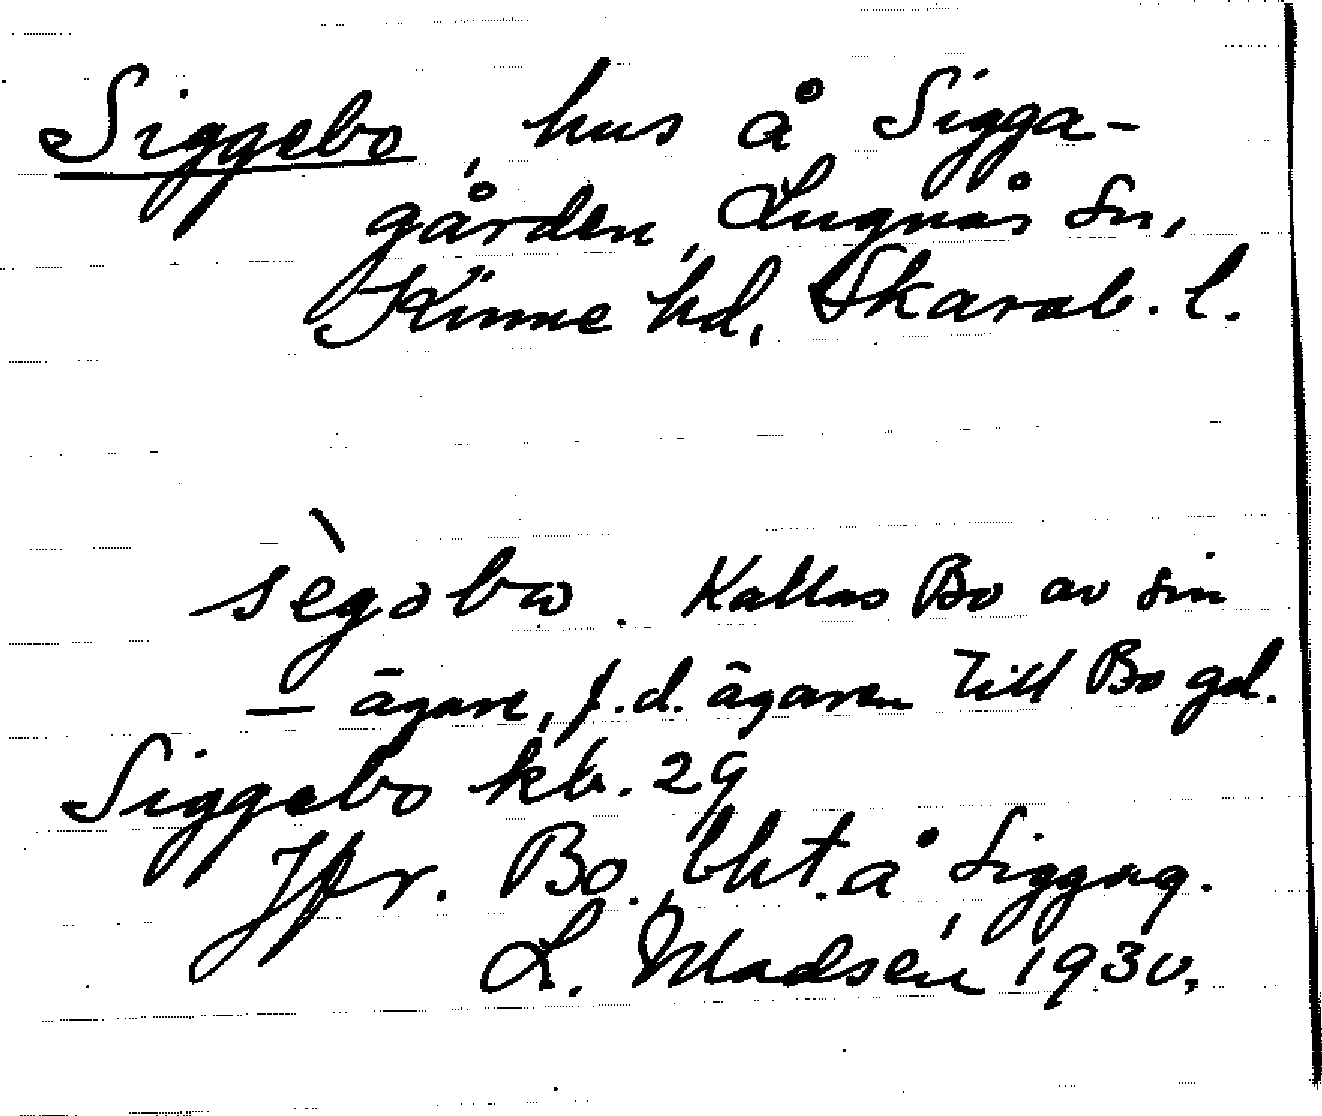 Siggebo, hus å Sigga-
gården, Lugnås sn,
Kinne hd, Skarab. l.
sègəbω. Kallas Bo av sin
– ägare, f.d. ägaren till Bo gd.
Siggebo kb. 29
Jfr. Bo, lht. å Siggag.
L. Madsén 1930.